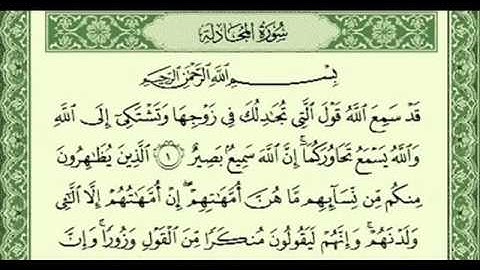 سُورَةُ المُجَادلَة
بِسْمِ ٱللَّهِ ٱلرَّحْمَٰنِ ٱلرَّحِيمِ
قَدْ سَمِعَ ٱللَّهُ قَوْلَ ٱلَّتِي تُجَٰدِلُكَ فِي زَوْجِهَا وَتَشْتَكِيٓ إِلَى ٱللَّهِ
وَٱللَّهُ يَسْمَعُ تَحَاوُرَكُمَآۚ إِنَّ ٱللَّهَ سَمِيعٌۢ بَصِيرٌ ١ ٱلَّذِينَ يُظَٰهِرُونَ
مِنكُم مِّن نِّسَآئِهِم مَّا هُنَّ أُمَّهَٰتِهِمْۖ إِنْ أُمَّهَٰتُهُمْ إِلَّا ٱلَّٰٓـِٔي
وَلَدْنَهُمْۚ وَإِنَّهُمْ لَيَقُولُونَ مُنكَرًا مِّنَ ٱلْقَوْلِ وَزُورًاۚ وَإِنَّ